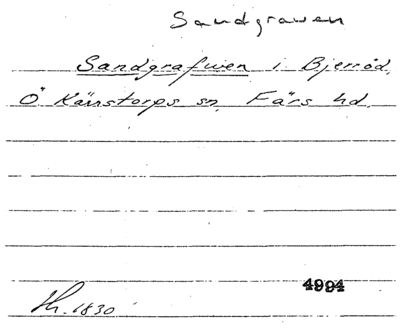 Sandgraven
Sandgrafven i Bjerröd,
Ö Kärrstorps sn. Färs hd.
4994
Th. 1830